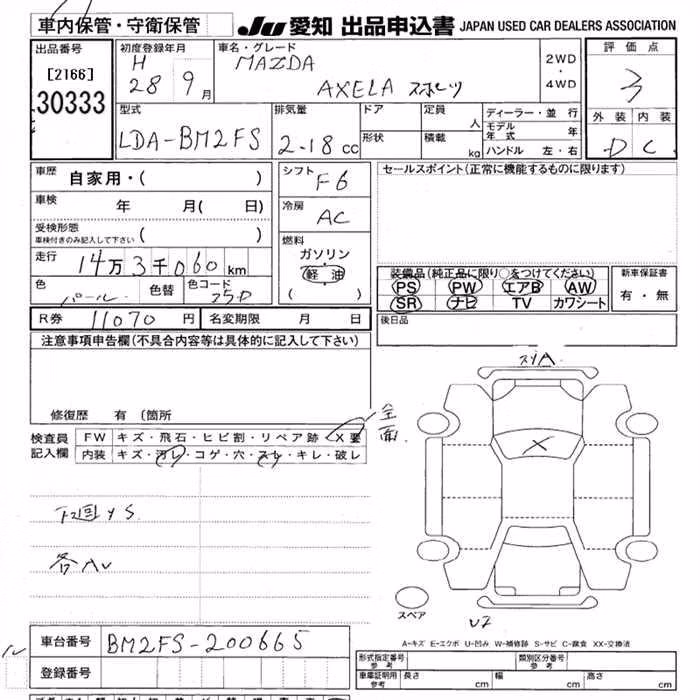 車内保管・守衛保管
JU 愛知 出品申込書 JAPAN USED CAR DEALERS ASSOCIATION
出品番号
[2166]
30333
初度登録年月
H
28 9 月
車名・グレード
MAZDA
AXELA スポーツ
2WD
・
4WD
評価点
3
外装 内装
D C
型式
LDA-BM2FS
排気量
2.18 cc
ドア
形状
定員 人
積載 kg
ディーラー・並行
モデル年式 年
ハンドル 左・右
車歴 自家用・( )
車検 年 月( 日)
受検形態
車検付きのみ記入して下さい ( )
走行 14万3千060 km
色 パール 色替 色コード 25D
シフト
F6
冷房
AC
燃料
ガソリン
軽油
( )
セールスポイント(正常に機能するものに限ります)
装備品(純正品に限り○をつけてください)
PS PW エアB AW
SR ナビ TV カワシート
新車保証書
有・無
R券 11070 円 名変期限 月 日
後日品
注意事項申告欄(不具合内容等は具体的に記入して下さい)
修復歴 有 (箇所
検査員
記入欄
FW キズ・飛石・ヒビ割・リペア跡・X要
内装 キズ・汚レ・コゲ・穴・スレ・キレ・破レ
全面
下回りS
各AU
X
スペア
U2
A-キズ E-エクボ U-凹み W-補修跡 S-サビ C-腐食 XX-交換済
車台番号 BM2FS-200665
登録番号
形式指定番号
参考
類別区分番号
参考
車庫証明用
参考
長さ cm 幅 cm 高さ cm